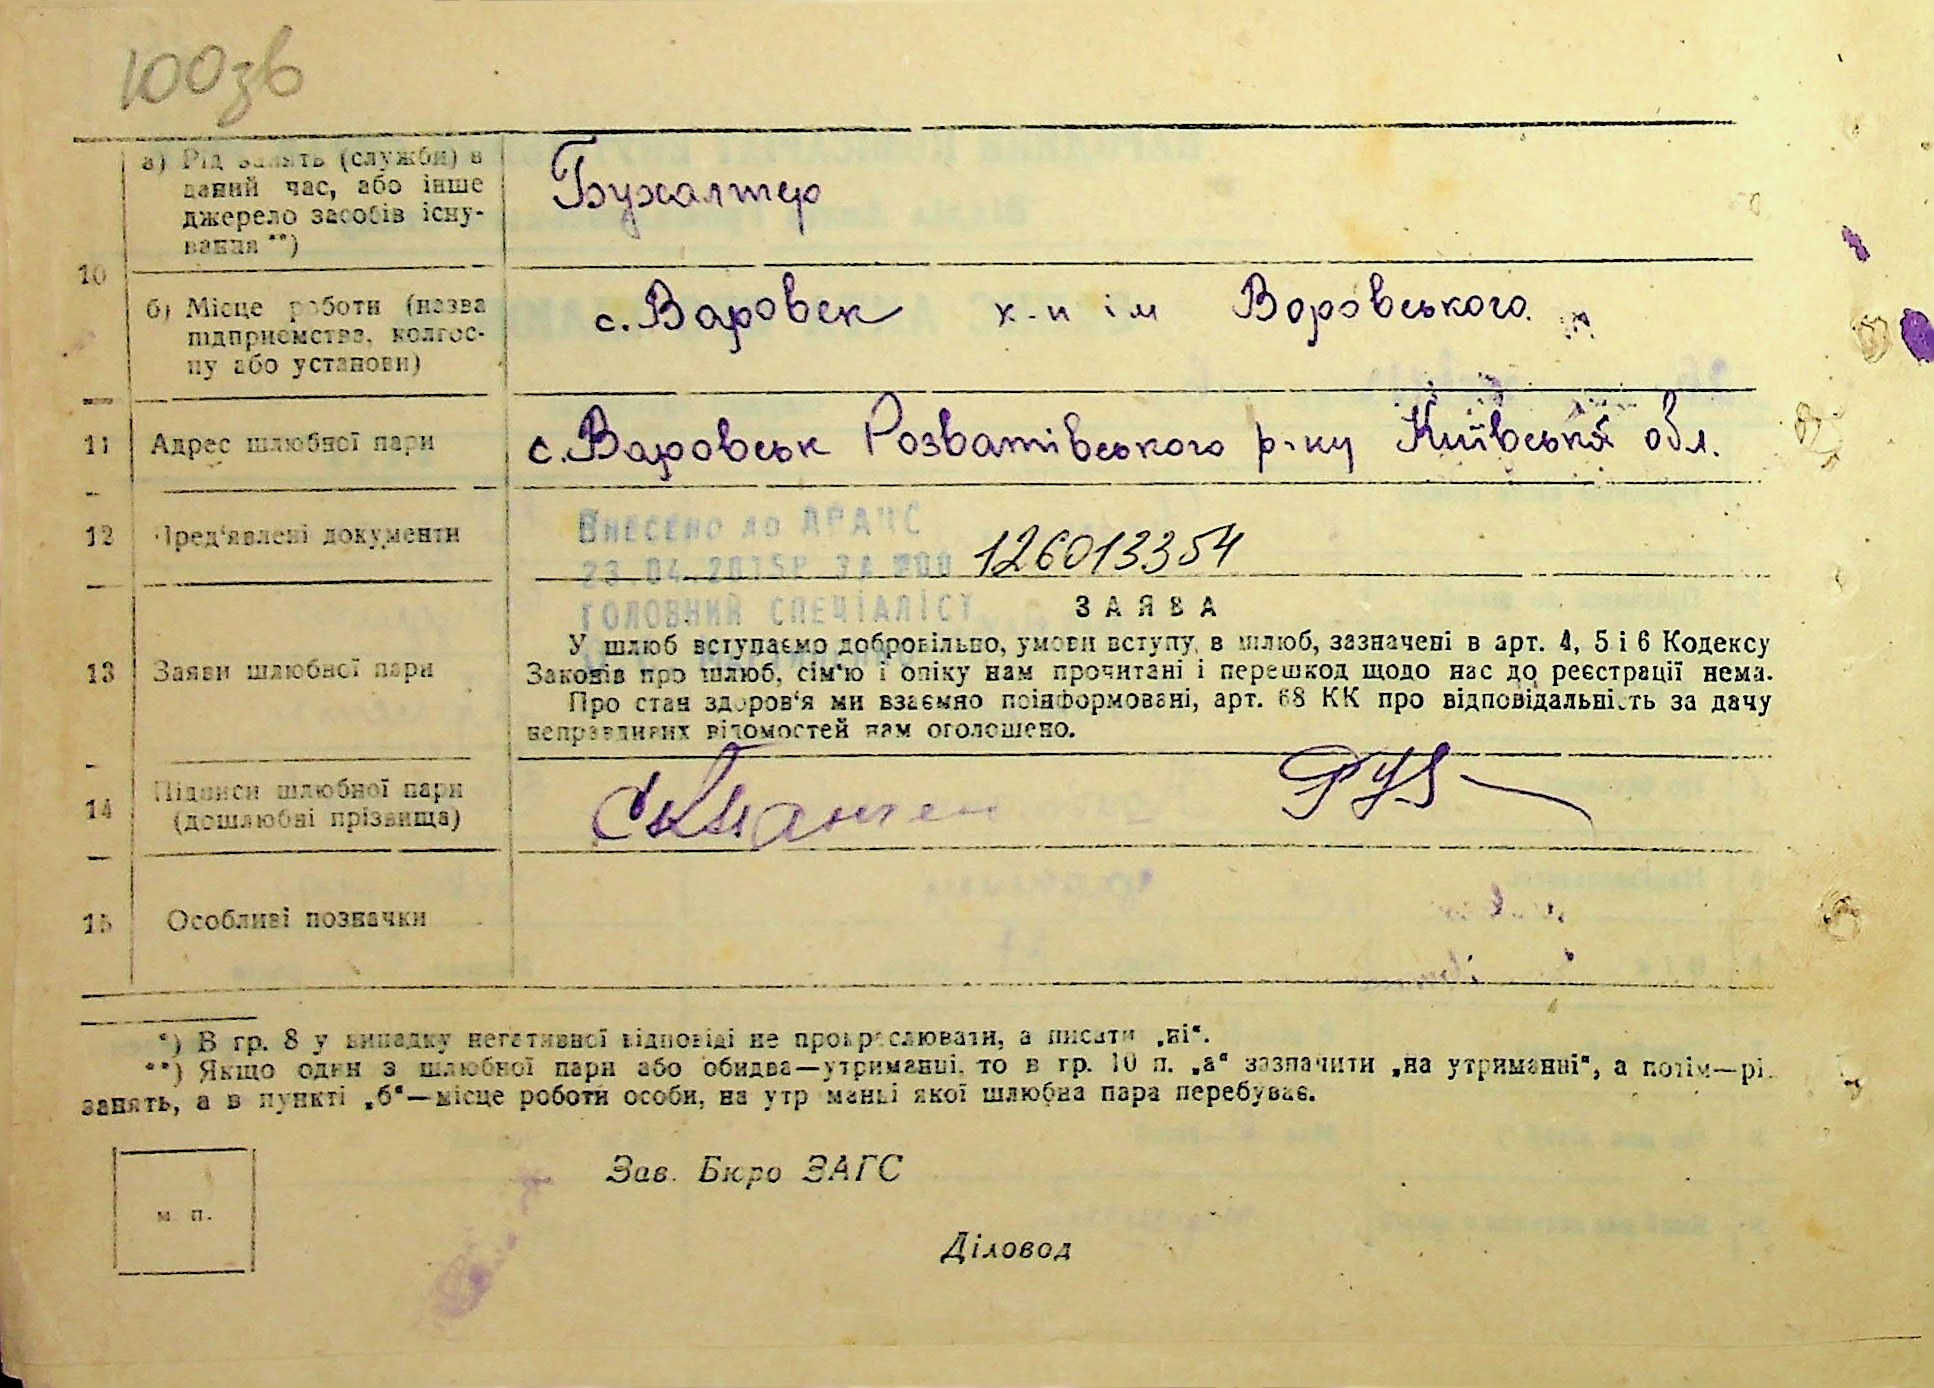 100зв
а) Рід занять (служби) в
даний час, або інше
джерело засобів існу-
вання **)
Бухалтер
10
б) Місце роботи (назва
підприємства, колгос-
пу або установи)
с. Варовск к-п ім Воровського.
11 Адрес шлюбної пари
с. Варовськ Розватівського р-ну Київської обл.
12 Пред'явлені документи
Внесено до ДРАЦС
23 04 2015р за №00 126013354
головний спеціаліст
13 Заяви шлюбної пари
ЗАЯВА
У шлюб вступаємо добровільно, умови вступу в шлюб, зазначені в арт. 4, 5 і 6 Кодексу
Законів про шлюб, сім'ю і опіку нам прочитані і перешкод щодо нас до реєстрації нема.
Про стан здоров'я ми взаємно поінформовані, арт. 68 КК про відповідальність за дачу
неправдивих відомостей нам оголошено.
14 Підписи шлюбної пари
(дошлюбні прізвища)
15 Особливі позначки
*) В гр. 8 у випадку негативної відповіді не прокреслювати, а писати „ні“.
**) Якщо один з шлюбної пари або обидва—утриманці, то в гр. 10 п. „а“ зазначити „на утриманні“, а потім—рі
занять, а в пункті „б“—місце роботи особи, на утр манні якої шлюбна пара перебуває.
Зав. Бюро ЗАГС
м. п.
Діловод